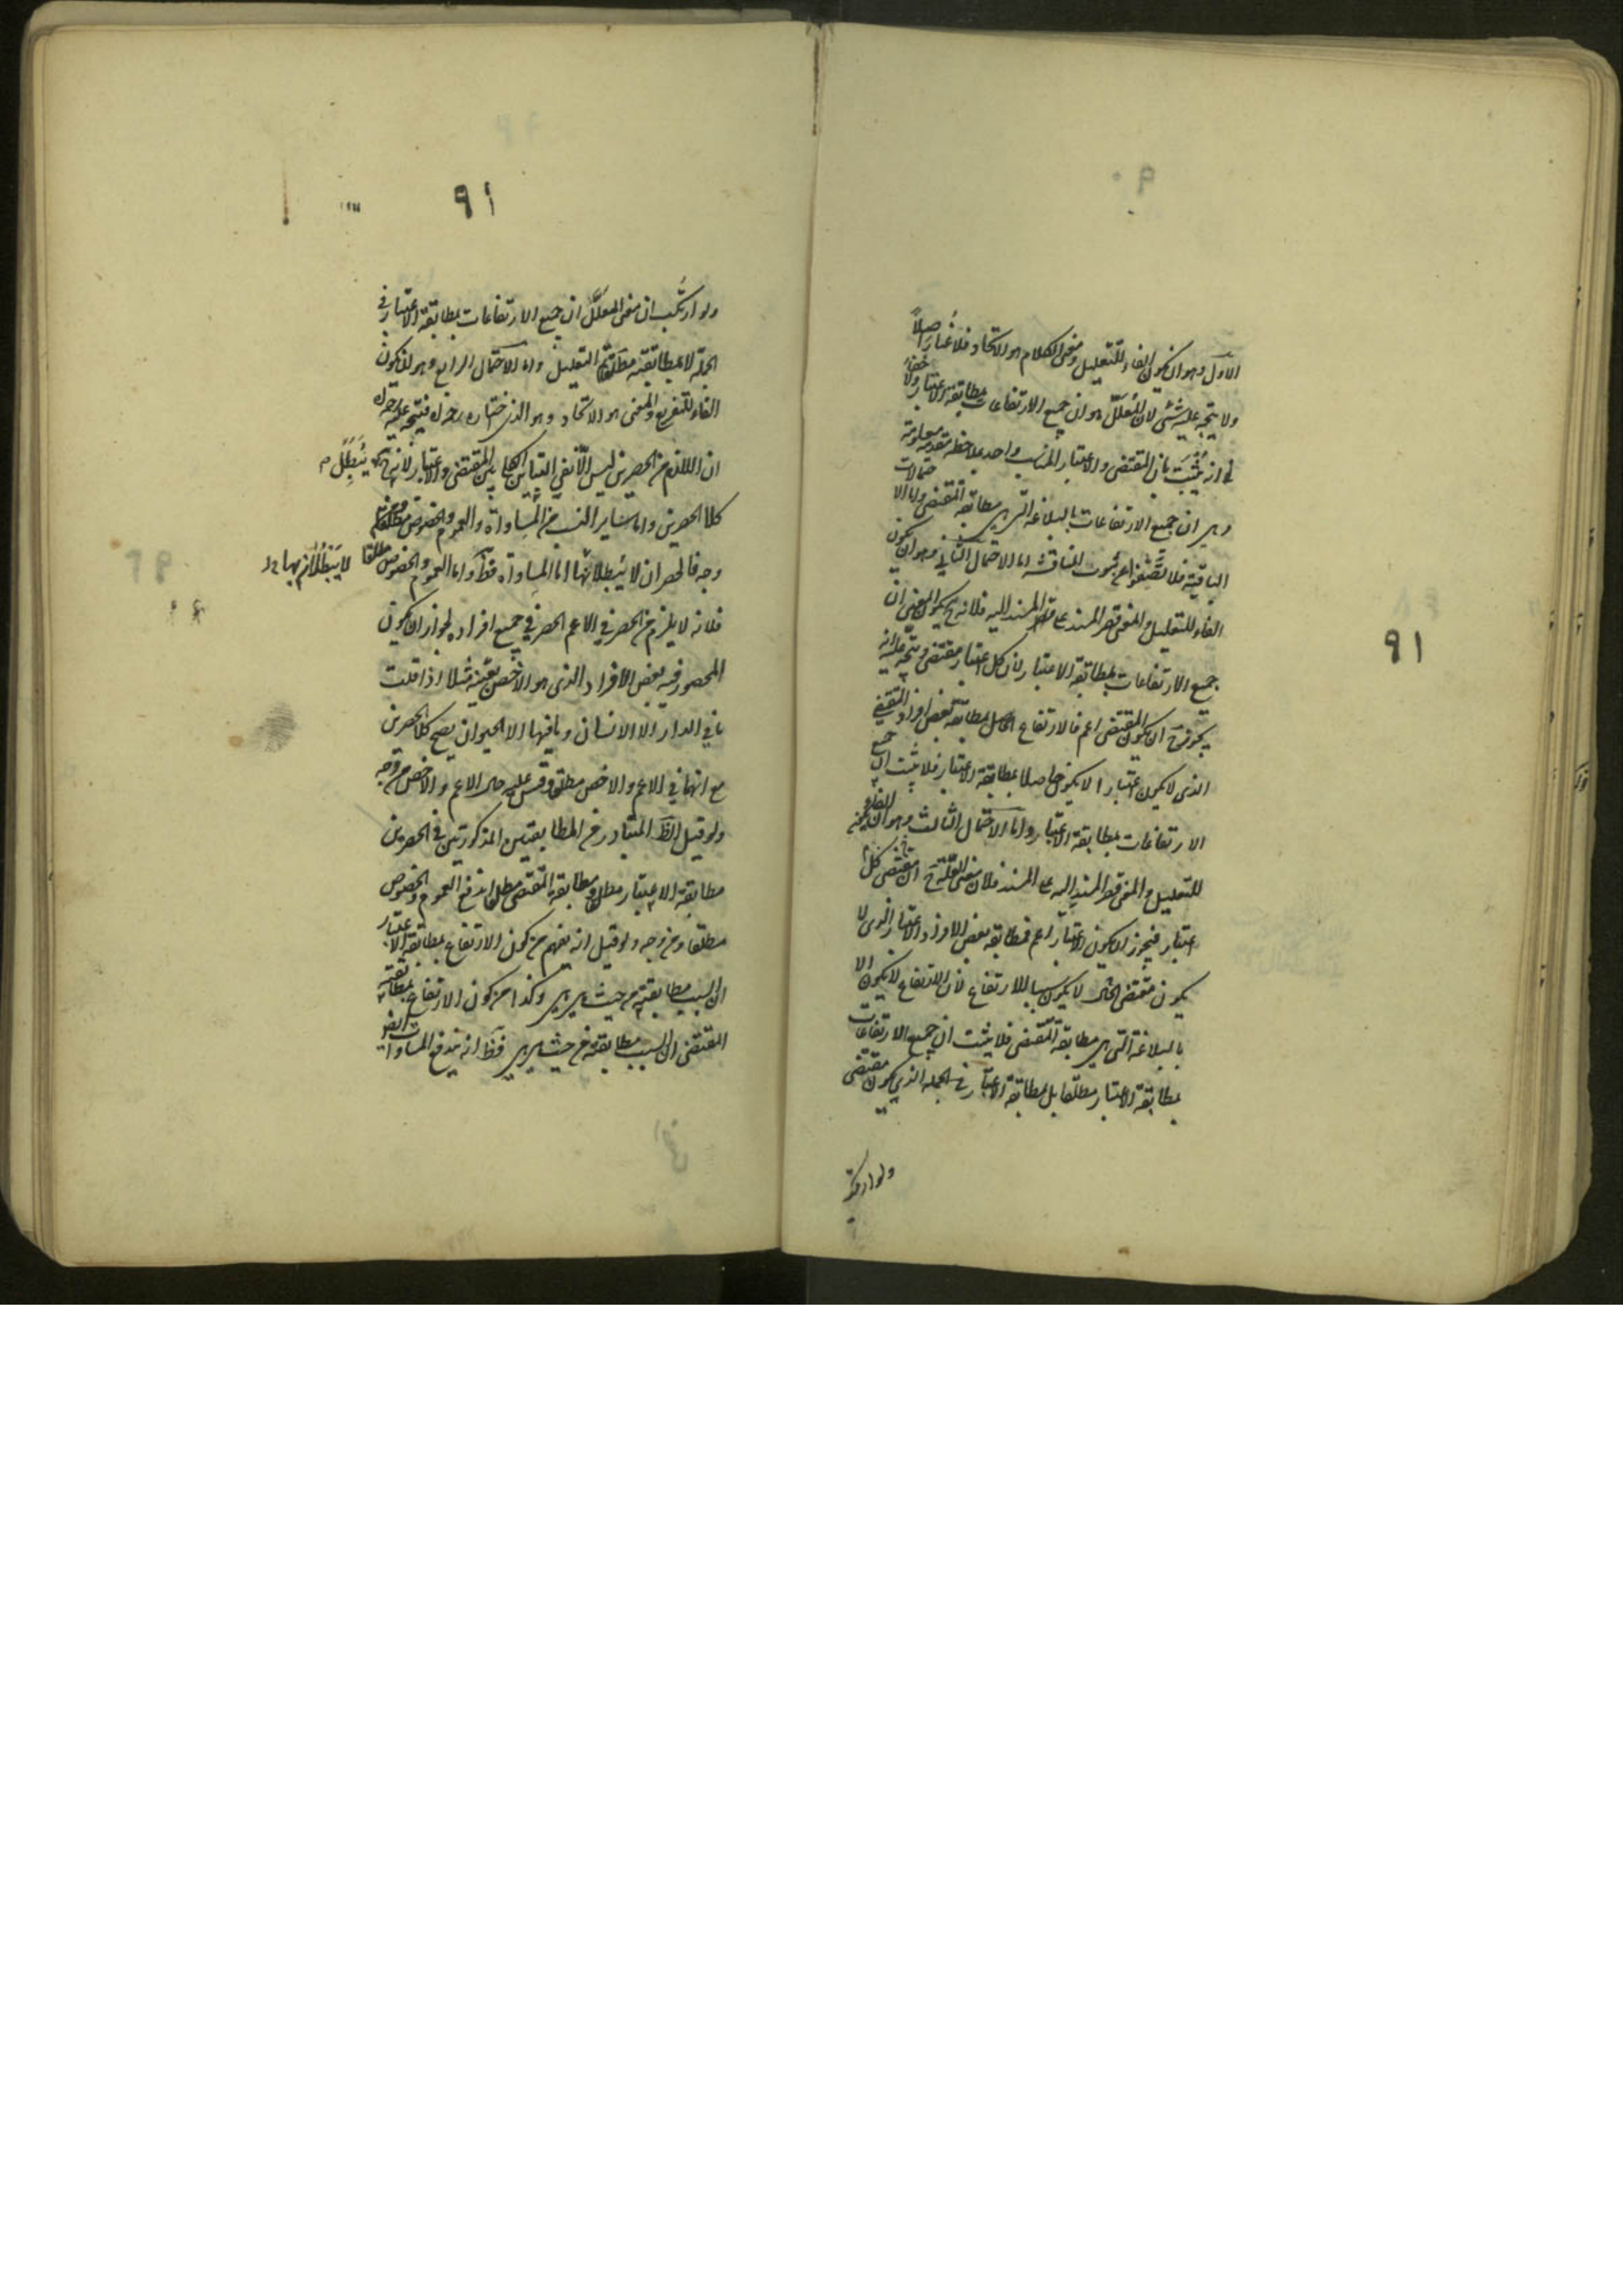 الاول وهو ان يكون الفاء للتعليل ومعنى الكلام هو الاتحاد فلا غبار اصلاً
ولا يتجه عليه شئ لان المعلل هو ان جميع الارتفاعات بمطابقة الاعتبار ولا خفاء
في انه يثبت بان المقتضى والاعتبار المناسب واحد بملاحظة مقدمة معلومة
وهى ان جميع الارتفاعات بالبلاغة التى هى مطابقة المقتضى واما الاحتمالات
الباقية فلا تصفو عن ثبوت المناقشة اما الاحتمال الثانى وهو ان يكون
الفاء للتعليل والمعنى قصر المسند على المسند اليه فلانه ح يكون المعنى ان
جميع الارتفاعات بمطابقة الاعتبار لان كل اعتبار مقتضى ويتجه عليه انه
يجوز ح ان يكون المقتضى اعم فالارتفاع الحاصل بمطابقة بعض افراد المقتضى
الذى لا يكون اعتبارا لا يكون حاصلا بمطابقة الاعتبار فلا يثبت ان جميع
الارتفاعات بمطابقة الاعتبار واما الاحتمال الثالث وهو ان يكون الفاء
للتعليل والمعنى قصر المسند اليه على المسند فلان معنى العلة ح ان مقتضى كل
اعتبار فيجوز ان يكون الاعتبار اعم فمطابقة بعض الافراد الاعتبار الذى لا
يكون مقتضى الحال لا يكون سببا للارتفاع لان الارتفاع لا يكون الا
بالبلاغة التى هى مطابقة المقتضى فلا يثبت ان جميع الارتفاعات
بمطابقة الاعتبار مطلقا بل بمطابقة الاعتبار فى الجملة الذى يكون مقتضى
ولو ارتكب
91
91
ولو ارتكب ان معنى المعلل ان جميع الارتفاعات بمطابقة الاعتبار فى
الجملة لا بمطابقته مطلقا تم التعليل واما الاحتمال الرابع وهو ان يكون
الفاء للتفريع والمعنى هو الاتحاد وهو الذى اختاره فيتجه عليه
ان اللازم من الحصرين ليس الا نفى التباين الكلى بين المقتضى والاعتبار لانه يبطل
كلا الحصرين واما سائر النسب من المساواة والعموم والخصوص مطلقا ومن
وجه فالحصران لا يبطلانها اما المساواة فظ واما العموم والخصوص مطلقا
فلانه لا يلزم من الحصر فى الاعم الحصر فى جميع افراده لجواز ان يكون
المحصور فيه بعض الافراد الذى هو الاخص بعينه مثلا اذا قلت
ما فى الدار الا الانسان وما فيها الا الحيوان يصح كلا الحصرين
مع انهما فى الاعم والاخص مطلقا وقس عليه حال الاعم والاخص من وجه
ولو قيل الظ المتبادر من المطابقتين المذكورتين فى الحصرين
مطابقة الاعتبار مطلقا ومطابقة المقتضى مطلقا اندفع العموم والخصوص
مطلقا ومن وجه ولو قيل انه يفهم من كون الارتفاع بمطابقة الاعتبار
ان السبب مطابقته من حيث هى هى وكذا من كون الارتفاع بمطابقة
المقتضى ان السبب مطابقته من حيث هى هى فظ انه يندفع المساواة ايضا